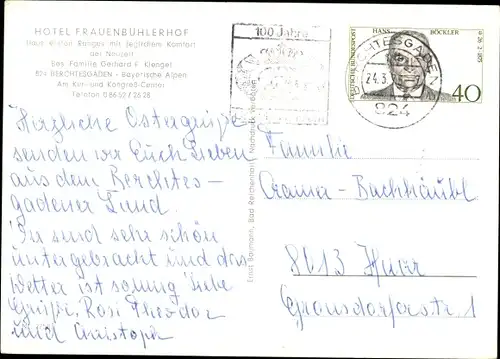 HOTEL FRAUENBÜHLERHOF
Haus ersten Ranges mit jeglichem Komfort
der Neuzeit
Bes. Familie Gerhard F. Klengel
824 BERCHTESGADEN - Bayerische Alpen
Am Kur- und Kongreß-Center
Telefon 0 86 52 / 26 28
Herzliche Ostergrüße
senden wir Euch Lieben
aus dem Berchtes-
gadener Land.
Wir sind sehr schön
untergebracht und das
Wetter ist sonnig. Liebe
Grüße Rosi Theodor
und Christoph
Ernst Baumann, Bad Reichenhall
100 Jahre
BERCHTESGADEN
24.3.
824
DEUTSCHE BUNDESPOST
HANS BÖCKLER
40
Familie
Cramer-Bachhäubl
8013 Haar
Gronsdorferstr. 1